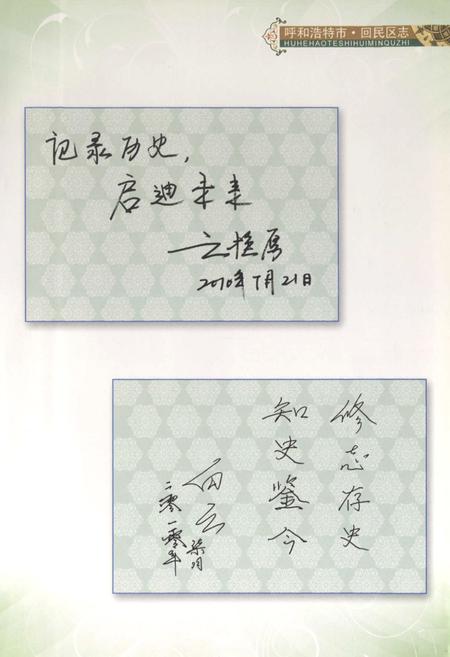 呼和浩特市·回民区志
HUHEHAOTESHIHUIMINQUZHI
记录历史，
启迪未来
2010年7月21日
修志存史
知史鉴今
白云
二零一零年
柒月